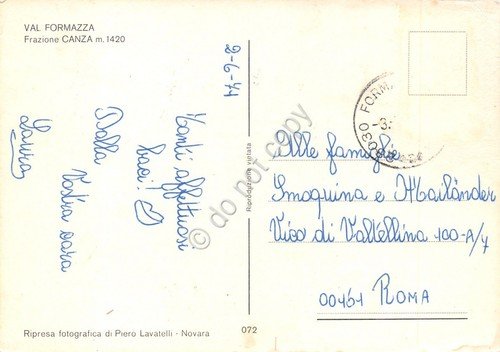 VAL FORMAZZA
Frazione CANZA m. 1420
2-6-74
Tanti affettuosi
baci!
Dalla
Vostra cara
Laura
Riproduzione vietata
Alle famiglie
Smoquina e Mailänder
Vico di Valtellina 100-A/4
00151 ROMA
Ripresa fotografica di Piero Lavatelli - Novara
072
do not copy